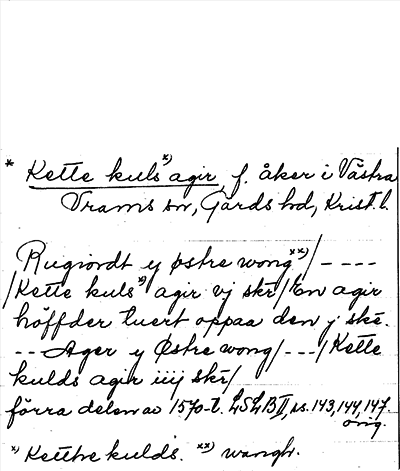 * Kette kuls x) agir, f. åker i Västra
Vrams sn, Gärds hd, Krist. l.
Rugiordt ey østre wong xx) / ----
/ Kette kuls x) agir vj skr / En agir
höffder tuert oppaa den j ske.
--- Ager y Østre wong / --- / Kette
kulds agir iiij skr /
förra delen av 1570-t. LSLB II, ss. 143, 144, 147.
orig.
x) Ketthe kulds. xx) wangh.